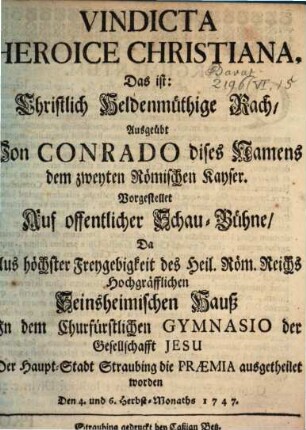 VINDICTA
HEROICE CHRISTIANA,
Das ist:
Christlich Heldenmüthige Rach/
Ausgeübt
Von CONRADO dises Namens
dem zweyten Römischen Kayser.
Vorgestellet
Auf offentlicher Schau-Bühne/
Da
Aus höchster Freygebigkeit des Heil. Röm. Reichs
Hochgräfflichen
Seinsheimischen Hauß
In dem Churfürstlichen GYMNASIO der
Gesellschafft JESU
Der Haupt-Stadt Straubing die PRÆMIA ausgetheilet
worden
Den 4. und 6. Herbst-Monaths 1747.
Straubing gedruckt bey Caßian Betz.